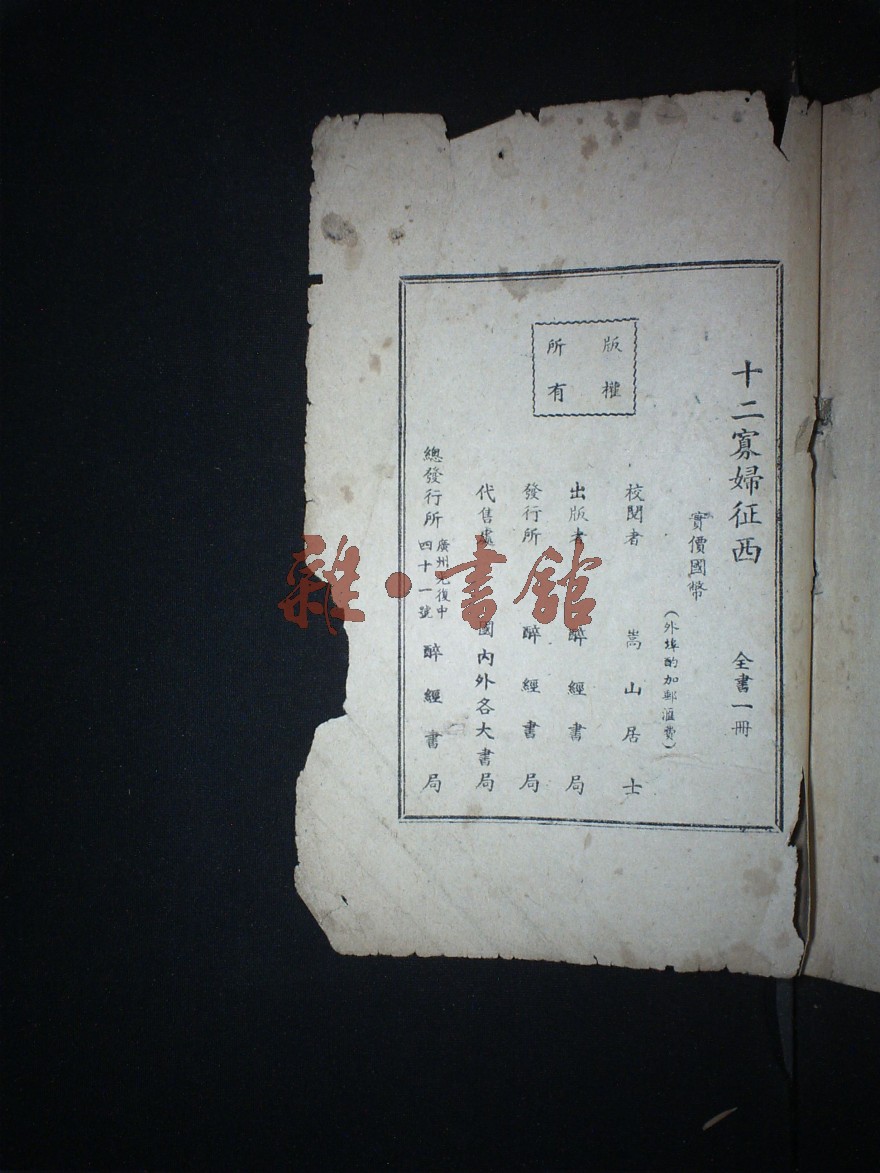 十二寡婦征西 全書一冊
實價國幣
（外埠酌加郵滙費）
版權所有
校閱者 嵩山居士
出版者 醉經書局
發行所 醉經書局
代售處 國內外各大書局
總發行所 廣州光復中四十一號 醉經書局
雜·書館